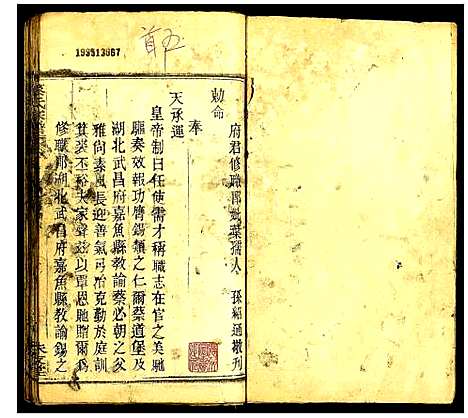 193513967
首五
府君修職郎並葉孺人 孫紹通敬刊
勅命
奉
天承運
皇帝制曰任使需才稱職志在官之美馳
驅奏效報功膺錫類之仁爾蔡道堡乃
湖北武昌府嘉魚縣教諭蔡必朝之父
雅尚素風長迎善氣弓冶克勤於庭訓
箕裘丕裕夫家聲茲以覃恩馳贈爾爲
修職郎湖北武昌府嘉魚縣教諭錫之